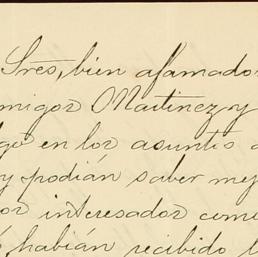 Sres, bien afamados
migos Martinez y
go en los asuntos
y podián saber mej
or interesador come
habián recibido l